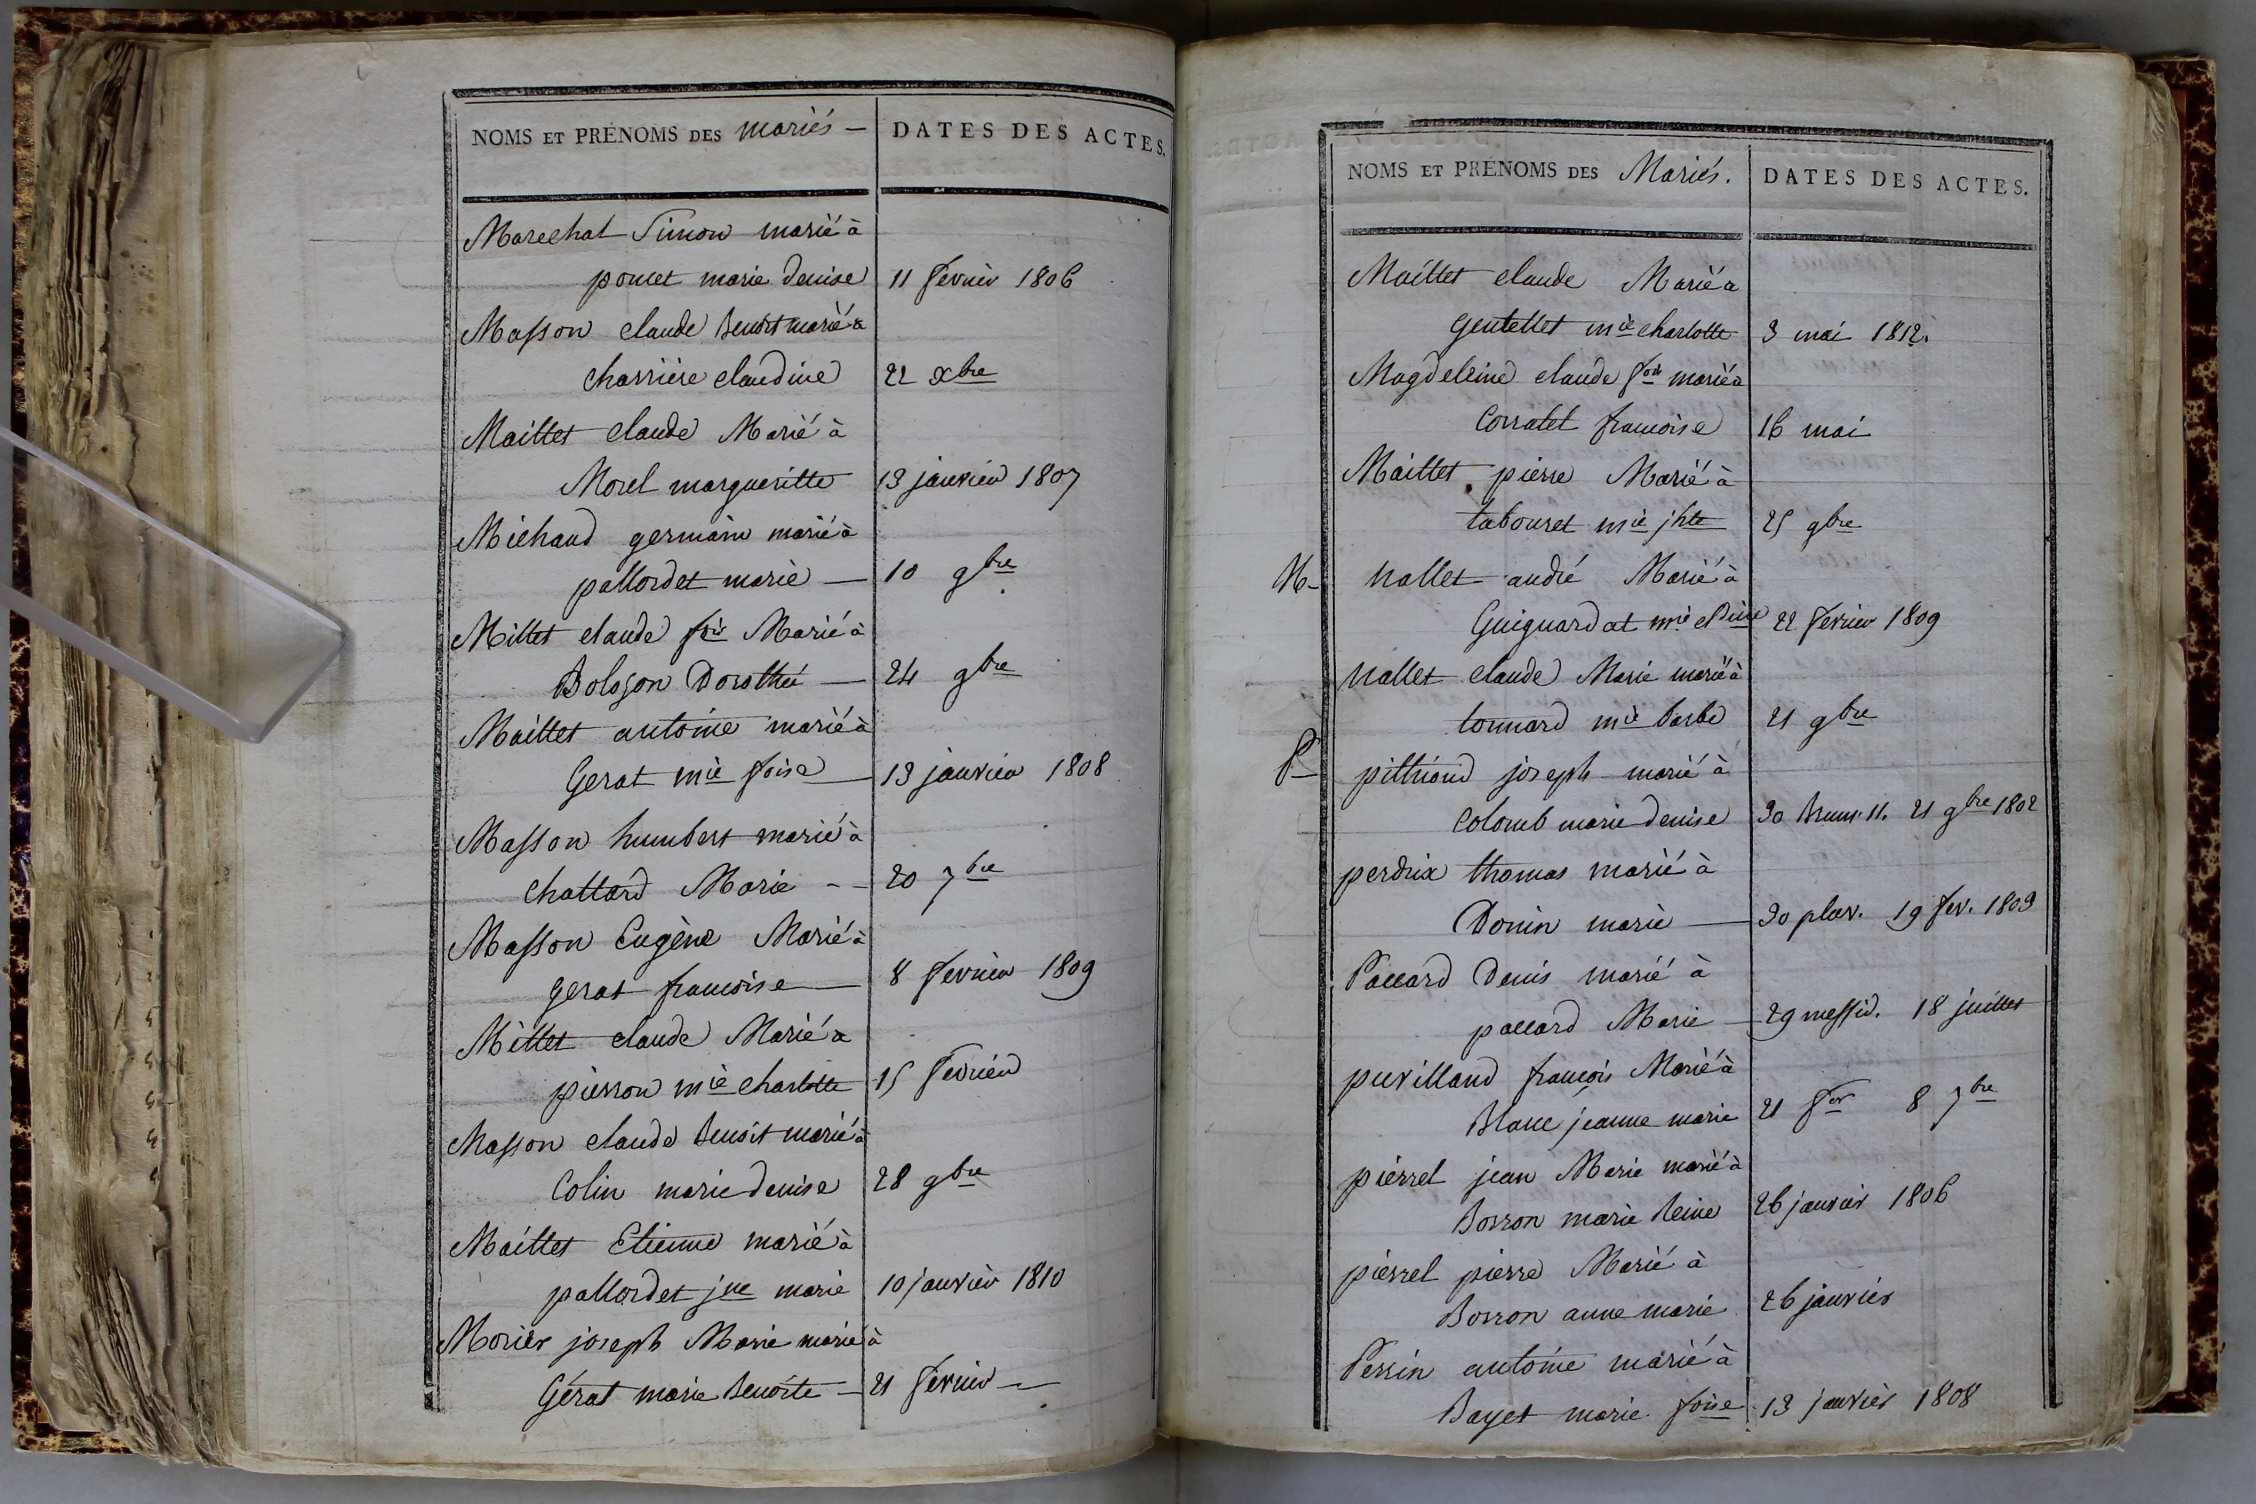 NOMS ET PRÉNOMS DES mariés — DATES DES ACTES.
Marechal Simon marié à
poncet marie denise 11 fevrier 1806
Masson claude Benoit marié à
charriere claudine 22 xbre
Maillet claude Marié à
Morel margueritte 13 janvier 1807
Michaud germain marié à
pallordet marie — 10 9bre
Millet claude fois Marié à
Bolozon Dorothée — 24 9bre
Maillet antoine marié à
Gerat mie foise — 13 janvier 1808
Masson humbert marié à
chattard Marie - - 20 7bre
Masson Eugène Marié à
gerat francoise — 8 fevrier 1809
Millet claude Marié à
pierron mie charlotte 15 fevrier
Masson claude Benoit marié à
Colin marie denise 28 9bre
Maillet Etienne marié à
pallordet jne marie 10 janvier 1810
Morier joseph Marie marié à
Gérat marie Benoite — 21 fevrier —
NOMS ET PRÉNOMS DES Mariés. DATES DES ACTES.
Maillet claude Marié à
gentellet mie charlotte 3 mai 1812.
Magdeleine claude fois marié à
Corratel francoise 16 mai
Maillet pierre Marié à
tabouret mie jhte 25 9bre
N - Nallet andré Marié à
Guignardat mie 22 fevrier 1809
Nallet claude Marie marié à
tonnard mie barbe 21 9bre
P - pithioud joseph marié à
Colomb marie denise 30 Brum. 11. 21 9bre 1802
perdrix thomas marié à
Donin marie — 30 pluv. 19 fev. 1803
Paccard Denis marié à
paccard Marie — 29 messid. 18 juillet
puvilland françois Marié à
Blanc jeanne marie 21 for 8 7bre
pierrel jean Marie marié à
Borron marie Reine 26 janvier 1806
pierrel pierre Marié à
Borron anne marie 26 janvier
Perrin antoine marié à
Bayet marie foise 13 janvier 1808